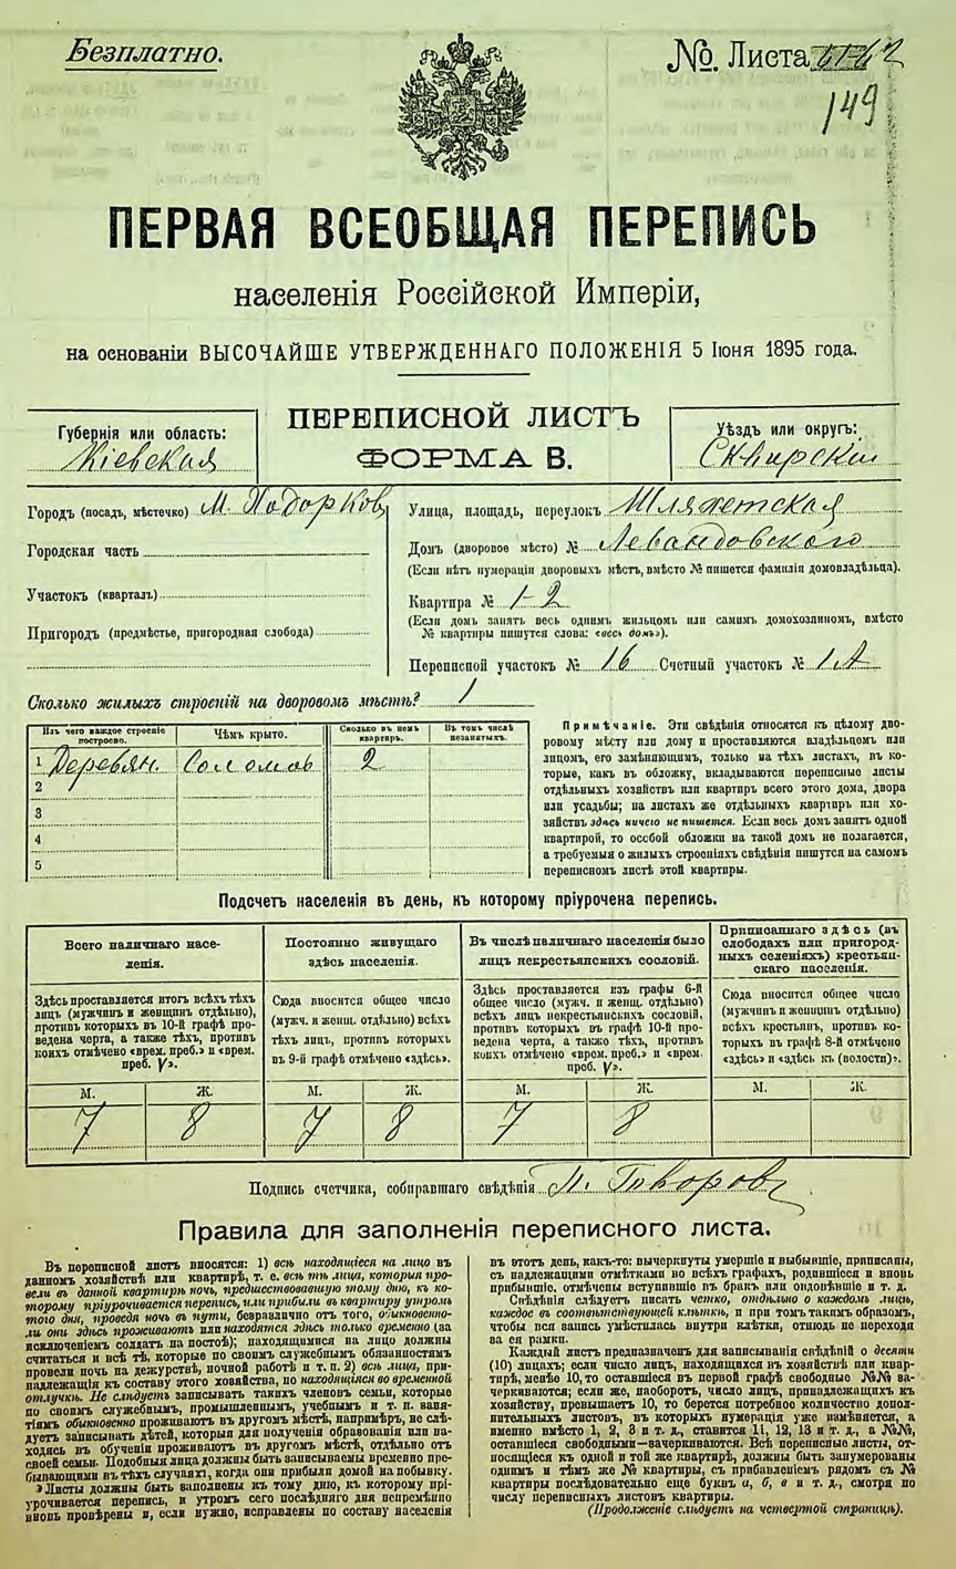 Безплатно.
№. Листа
149
ПЕРВАЯ ВСЕОБЩАЯ ПЕРЕПИСЬ
населенія Россійской Имперіи,
на основаніи ВЫСОЧАЙШЕ УТВЕРЖДЕННАГО ПОЛОЖЕНІЯ 5 Іюня 1895 года.
ПЕРЕПИСНОЙ ЛИСТЪ
ФОРМА В.
Губернія или область:
Кіевская
Уѣздъ или округъ:
Сквирскій
Городъ (посадъ, мѣстечко) М. Ходорков
Городская часть
Участок (кварталъ)
Пригородъ (предмѣстье, пригородная слобода)
Улица, площадь, переулокъ Шляхетская
Домъ (дворовое мѣсто) № Левандовского
(Если нѣтъ нумераціи дворовыхъ мѣстъ, вмѣсто № пишется фамилія домовладѣльца).
Квартира № 1-2
(Если домъ занятъ весь однимъ жильцомъ или самимъ домохозяиномъ, вмѣсто
№ квартиры пишутся слова: «весь домъ»).
Переписной участокъ № 16 Счетный участокъ № 1 А
Сколько жилыхъ строеній на дворовомъ мѣстѣ? 1
Изъ чего каждое строеніе построено.
Чѣмъ крыто.
Сколько въ немъ квартиръ.
Въ томъ числѣ незанятыхъ.
1 Деревян. Соломов 2
2
3
4
5
Примѣчаніе. Эти свѣдѣнія относятся къ цѣлому дво-
ровому мѣсту или дому и проставляются владѣльцемъ или
лицомъ, его замѣняющимъ, только на тѣхъ листахъ, въ ко-
торые, какъ въ обложку, вкладываются переписные листы
отдѣльныхъ хозяйствъ или квартиръ всего этого дома, двора
или усадьбы; на листахъ же отдѣльныхъ квартиръ или хо-
зяйствъ здѣсь ничего не пишется. Если весь домъ занятъ одной
квартирой, то особой обложки на такой домъ не полагается,
а требуемыя о жилыхъ строеніяхъ свѣдѣнія пишутся на самомъ
переписномъ листѣ этой квартиры.
Подсчетъ населенія въ день, къ которому пріурочена перепись.
Всего наличнаго насе-
ленія.
Здѣсь проставляется итогъ всѣхъ тѣхъ
лицъ (мужчинъ и женщинъ отдѣльно),
противъ которыхъ въ 10-й графѣ про-
ведена черта, а также тѣхъ, противъ
коихъ отмѣчено «врем. преб.» и «врем.
преб. V».
Постоянно живущаго
здѣсь населенія.
Сюда вносится общее число
(мужч. и женщ. отдѣльно) всѣхъ
тѣхъ лицъ, противъ которыхъ
въ 9-й графѣ отмѣчено «здѣсь».
Въ числѣ наличнаго населенія было
лицъ некрестьянскихъ сословій.
Здѣсь проставляется изъ графы 6-й
общее число (мужч. и женщ. отдѣльно)
всѣхъ лицъ некрестьянскихъ сословій,
противъ которыхъ въ графѣ 10-й про-
ведена черта, а также тѣхъ, противъ
коихъ отмѣчено «врем. преб.» и «врем.
преб. V».
Приписаннаго здѣсь (въ
слободахъ или пригород-
ныхъ селеніяхъ) крестьян-
скаго населенія.
Сюда вносится общее число
(мужчинъ и женщинъ отдѣльно)
всѣхъ крестьянъ, противъ ко-
торыхъ въ графѣ 8-й отмѣчено
«здѣсь» и «здѣсь къ (волости)».
М. Ж. М. Ж. М. Ж. М. Ж.
7 8 7 8 7 8
Подпись счетчика, собиравшаго свѣдѣнія П. Говоров
Правила для заполненія переписного листа.
Въ переписной листъ вносятся: 1) всѣ находящіеся на лицо въ
данномъ хозяйствѣ или квартирѣ, т. е. всѣ тѣ лица, которыя про-
вели въ данной квартирѣ ночь, предшествовавшую тому дню, къ ко-
торому пріурочивается перепись, или прибыли въ квартиру утромъ
того дня, проведя ночь въ пути, безразлично отъ того, обыкновен-
но-ли они здѣсь проживаютъ или находятся здѣсь только временно (за
исключеніемъ солдатъ на постоѣ); находящимися на лицо должны
считаться и всѣ тѣ, которые по своимъ служебнымъ обязанностямъ
провели ночь на дежурствѣ, ночной работѣ и т. п. 2) всѣ лица, при-
надлежащія къ составу этого хозяйства, но находящіяся во временной
отлучкѣ. Не слѣдуетъ записывать такихъ членовъ семьи, которые
по своимъ служебнымъ, промышленнымъ, учебнымъ и т. п. заня-
тіямъ обыкновенно проживаютъ въ другомъ мѣстѣ, напримѣръ, не слѣ-
дуетъ записывать дѣтей, которыя для полученія образованія или на-
ходясь въ обученіи проживаютъ въ другомъ мѣстѣ, отдѣльно отъ
своей семьи. Подобныя лица должны быть записываемы временно пре-
бывающими въ тѣхъ случаяхъ, когда они прибыли домой на побывку.
Листы должны быть заполнены къ тому дню, къ которому прі-
урочивается перепись, и утромъ сего послѣдняго дня непремѣнно
вновь провѣрены и, если нужно, исправлены по составу населенія
въ этотъ день, какъ-то: вычеркнуты умершіе и выбывшіе, приписаны,
съ надлежащими отмѣтками во всѣхъ графахъ, родившіеся и вновь
прибывшіе, отмѣчены вступившіе въ бракъ или овдовѣвшіе и т. д.
Свѣдѣнія слѣдуетъ писать четко, отдѣльно о каждомъ лицѣ,
каждое въ соотвѣтствующей клѣткѣ, и при томъ такимъ образомъ,
чтобы вся запись умѣстилась внутри клѣтки, отнюдь не переходя
за ея рамки.
Каждый листъ предназначенъ для записыванія свѣдѣній о десяти
(10) лицахъ; если число лицъ, находящихся въ хозяйствѣ или квар-
тирѣ, менѣе 10, то оставшіеся въ первой графѣ свободные №№ за-
черкиваются; если же, наоборотъ, число лицъ, принадлежащихъ къ
хозяйству, превышаетъ 10, то берется потребное количество допол-
нительныхъ листовъ, въ которыхъ нумерація уже измѣняется, а
именно вмѣсто 1, 2, 3 и т. д., ставится 11, 12, 13 и т. д., а №№,
оставшіеся свободными—зачеркиваются. Всѣ переписные листы, от-
носящіеся къ одной и той же квартирѣ, должны быть занумерованы
однимъ и тѣмъ же № квартиры, съ прибавленіемъ рядомъ съ №
квартиры послѣдовательно еще буквъ а, б, в и т. д., смотря по
числу переписныхъ листовъ квартиры.
(Продолженіе слѣдуетъ на четвертой страницѣ).